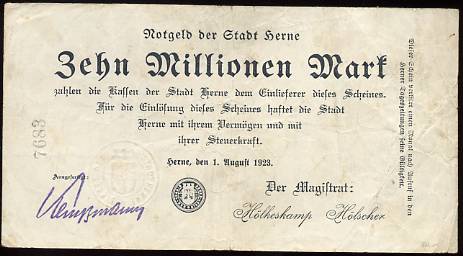 Notgeld der Stadt Herne
Zehn Millionen Mark
zahlen die Kassen der Stadt Herne dem Einlieferer dieses Scheines.
Für die Einlösung dieses Scheines haftet die Stadt
Herne mit ihrem Vermögen und mit
ihrer Steuerkraft.
Herne, den 1. August 1923.
Ausgefertigt:
Der Magistrat:
Hölkeskamp Hölscher
7683
Dieser Schein verliert einen Monat nach Aufruf in den
Herner Tageszeitungen seine Gültigkeit.